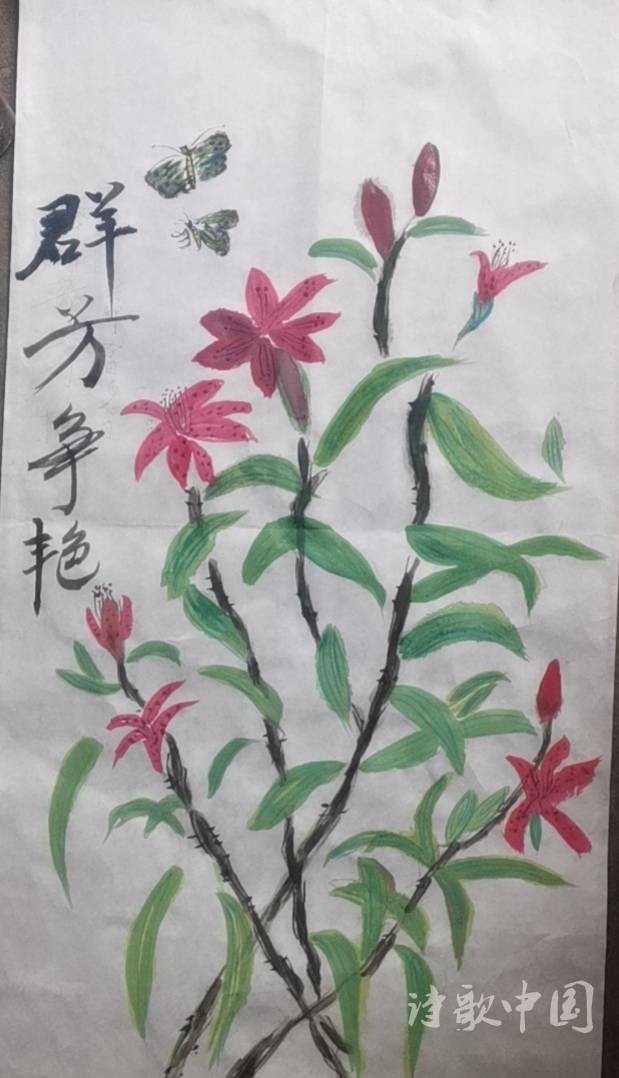 群芳争艳
诗歌中国